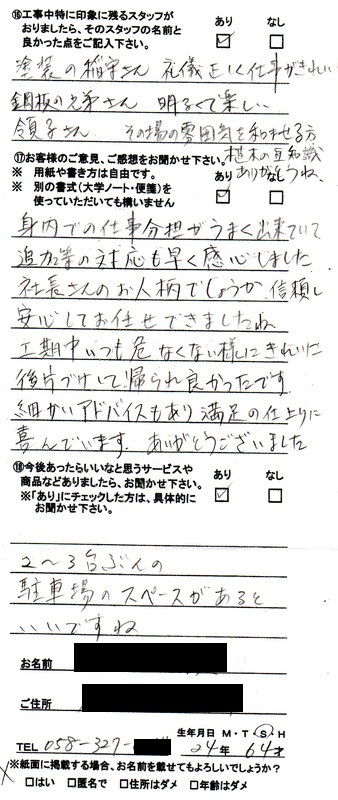 ⑯工事中特に印象に残るスタッフが
おりましたら、そのスタッフの名前と
良かった点をご記入下さい。
あり なし
塗装の稲守さん 礼儀正しく仕事がきれい
鋼板の兄弟さん 明るくて楽しい
領子さん その場の雰囲気を和ませる方
植木の豆知識
ありがとうね
⑰お客様のご意見、ご感想をお聞かせ下さい。
※ 用紙や書き方は自由です。
※ 別の書式(大学ノート・便箋)を
使っていただいても構いません
あり なし
身内での仕事分担がうまく出来ていて
追加等の対応も早く感心しました
社長さんのお人柄でしょうか 信頼し
安心してお任せできましたね
工期中いつも危なくない様にきれいに
後片づけして帰られ良かったです
細かいアドバイスもあり満足の仕上りに
喜んでいます ありがとうございました
⑱今後あったらいいなと思うサービスや
商品などありましたら、お聞かせ下さい。
※「あり」にチェックした方は、具体的に
お聞かせ下さい。
あり なし
2〜3台ぶんの
駐車場のスペースがあると
いいですね
お名前
ご住所
生年月日 M・T・S・H
TEL 058-327- 24年 64才
※紙面に掲載する場合、お名前を載せてもよろしいでしょうか?
□はい □匿名で □住所はダメ □年齢はダメ